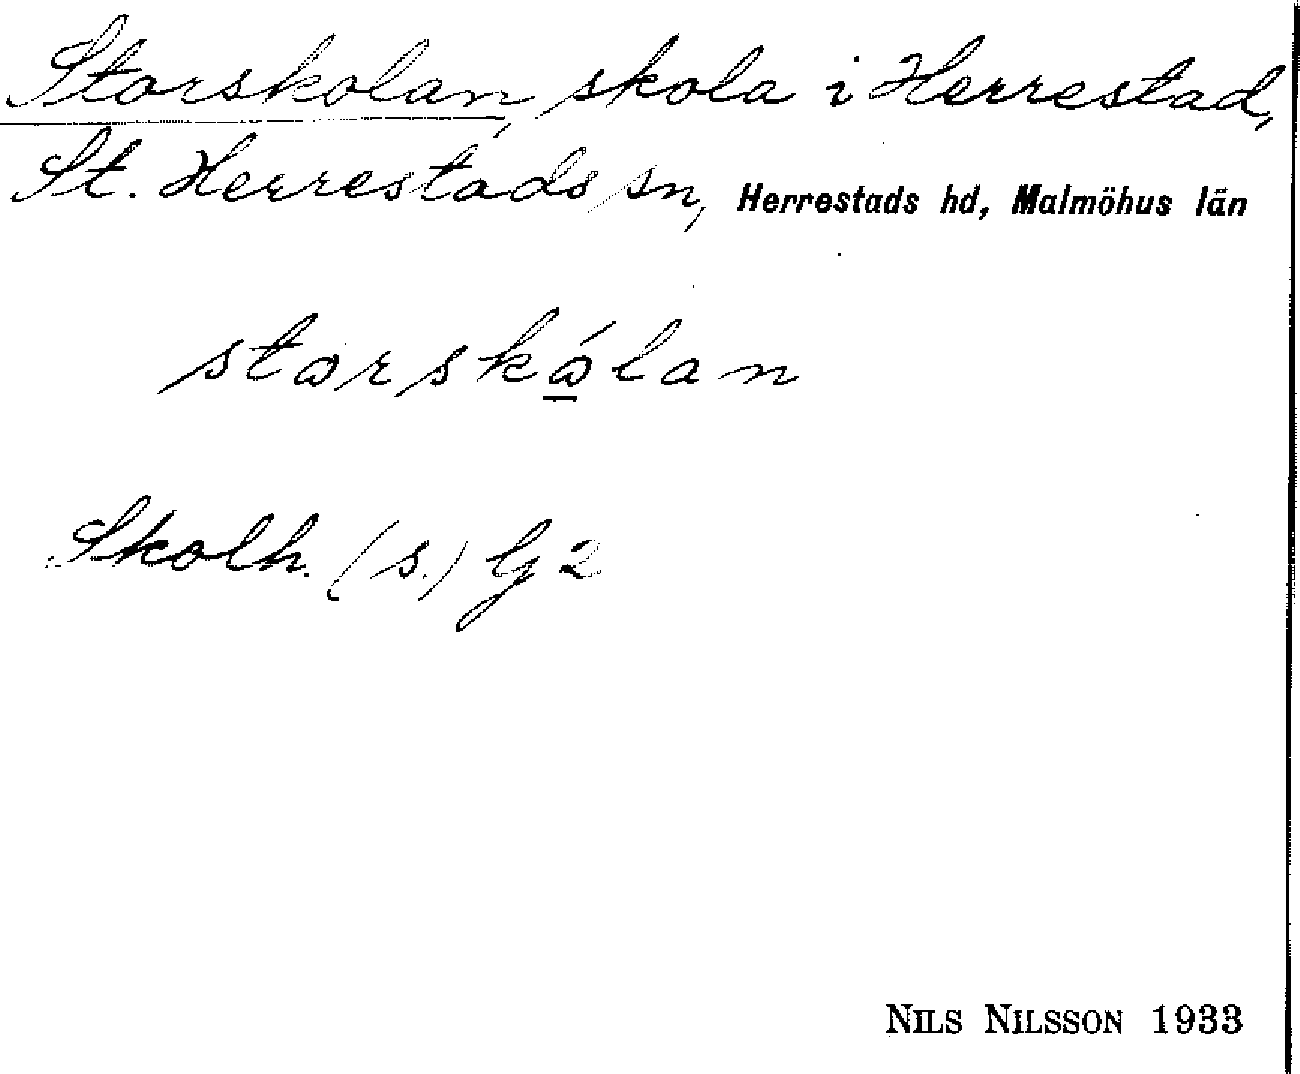 Storskolan, skola i Herrestad,
St. Herrestads sn, Herrestads hd, Malmöhus län
storskó̱lan
Skolh. (s.) G 2
NILS NILSSON 1933